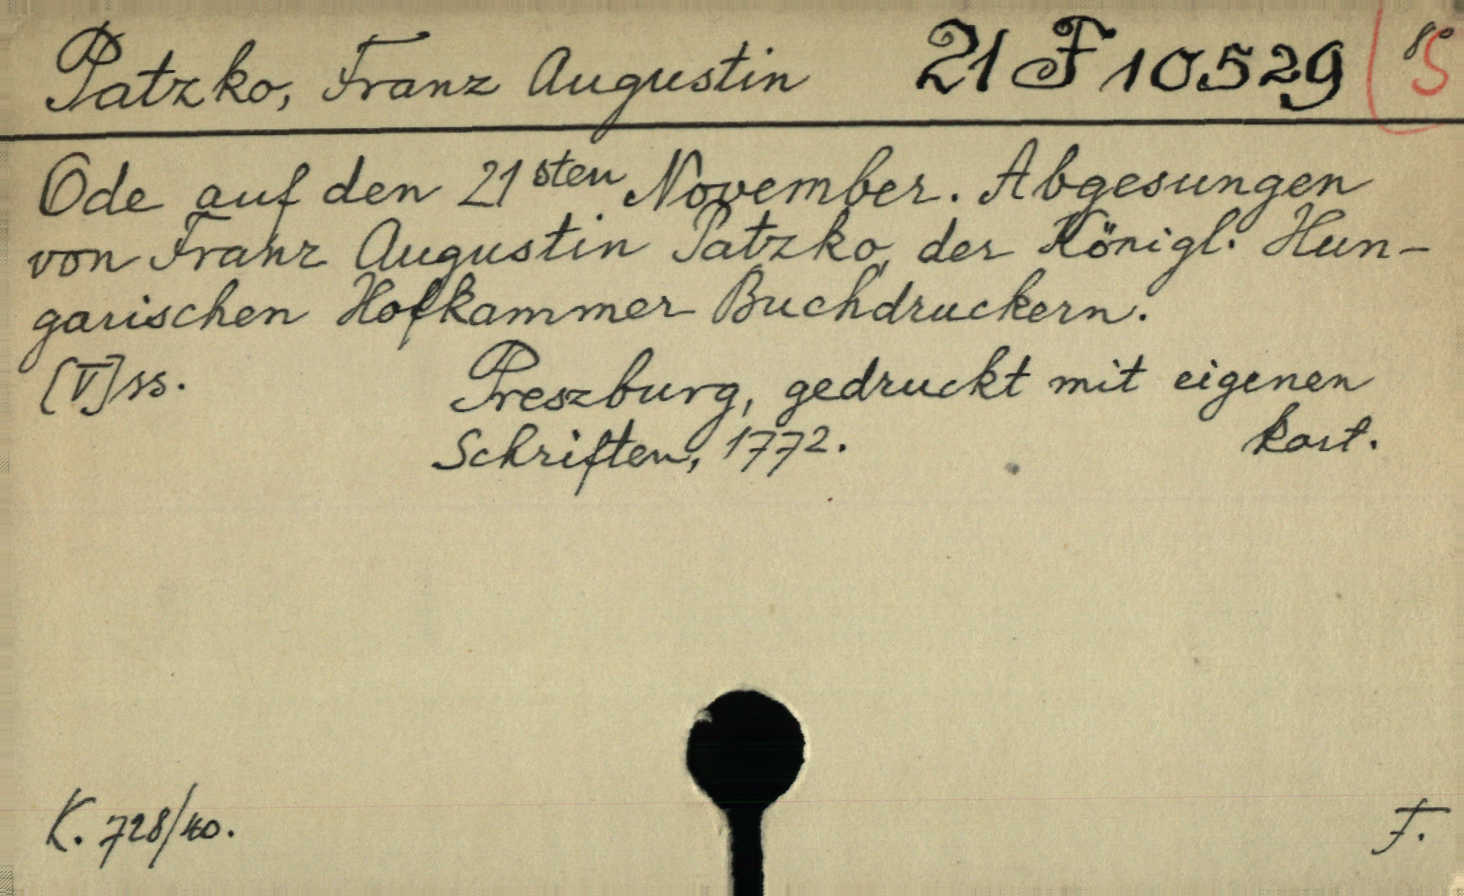 Patzko, Franz Augustin 21 F 10529 8° S
Ode auf den 21sten November. Abgesungen
von Franz Augustin Patzko, der Königl. Hun-
garischen Hofkammer Buchdruckern.
[V] ss. Preszburg, gedruckt mit eigenen
Schriften, 1772. kart.
K. 728/40. F.